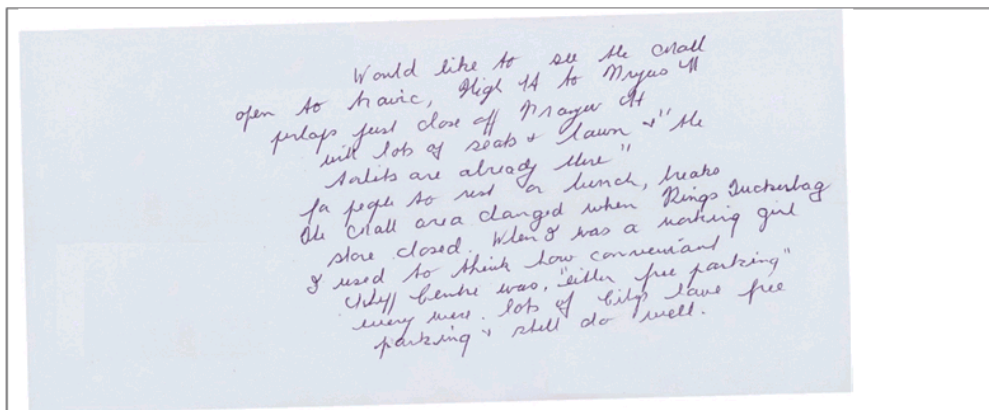 Would like to see the mall
open to travic, High St to Myers St
perhaps just close off Mayer St
with lots of seats & lawn & "the
toilets are already there"
for people to rest or lunch, breaks
the mall area changed when Kings Tuckerbag
store closed. When I was a working girl
I used to think how conveniant
City Centre was, "either free parking"
every were. lots of Citys have free
parking & still do well.